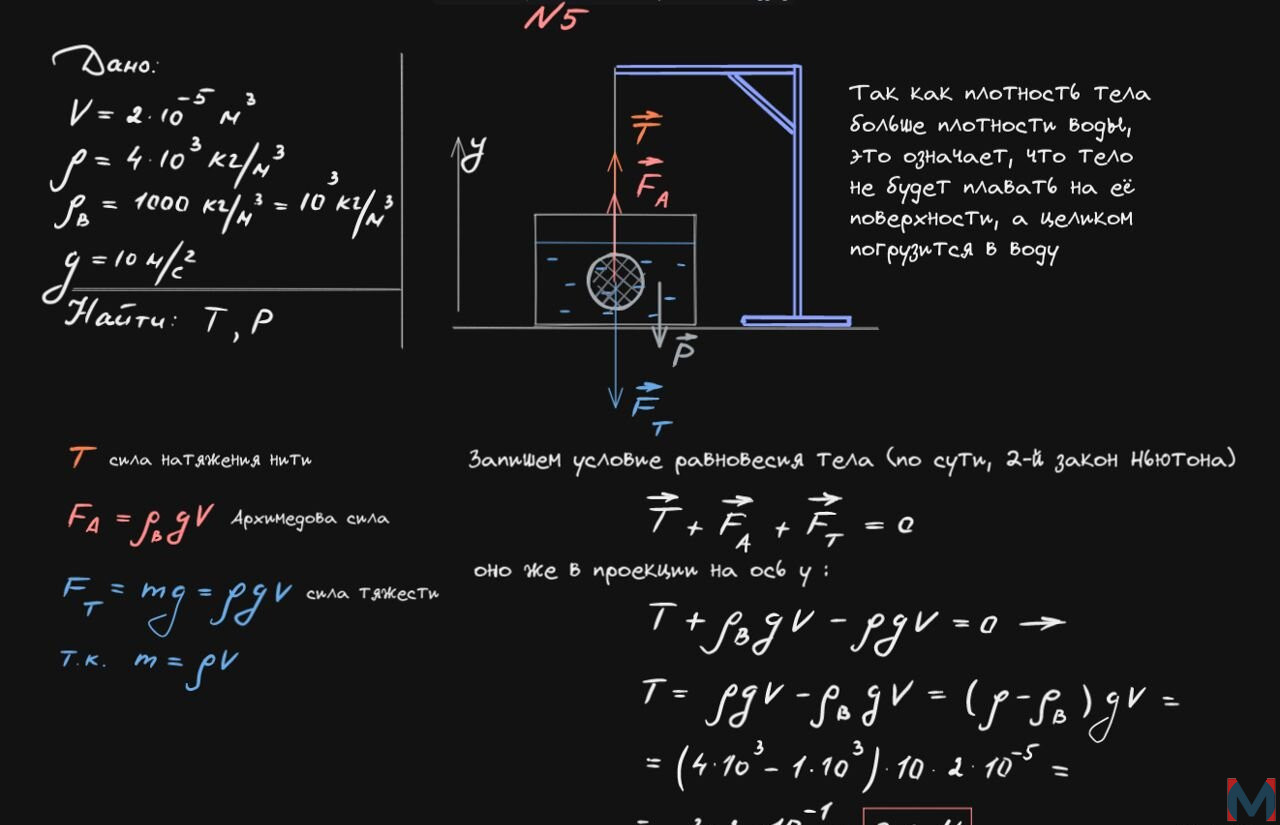 N5
Дано:
V = 2·10⁻⁵ м³
ρ = 4·10³ кг/м³
ρ_В = 1000 кг/м³ = 10³ кг/м³
g = 10 м/с²
Найти: T, P
y
T
F_A
P
F_T
Так как плотность тела
больше плотности воды,
это означает, что тело
не будет плавать на её
поверхности, а целиком
погрузится в воду
T сила натяжения нити
F_A = ρ_В gV Архимедова сила
F_T = mg = ρgV сила тяжести
т.к. m = ρV
Запишем условие равновесия тела (по сути, 2-й закон Ньютона)
T + F_A + F_T = 0
оно же в проекции на ось y:
T + ρ_В gV - ρgV = 0 →
T = ρgV - ρ_В gV = (ρ - ρ_В)gV =
= (4·10³ - 1·10³)·10·2·10⁻⁵ =
M